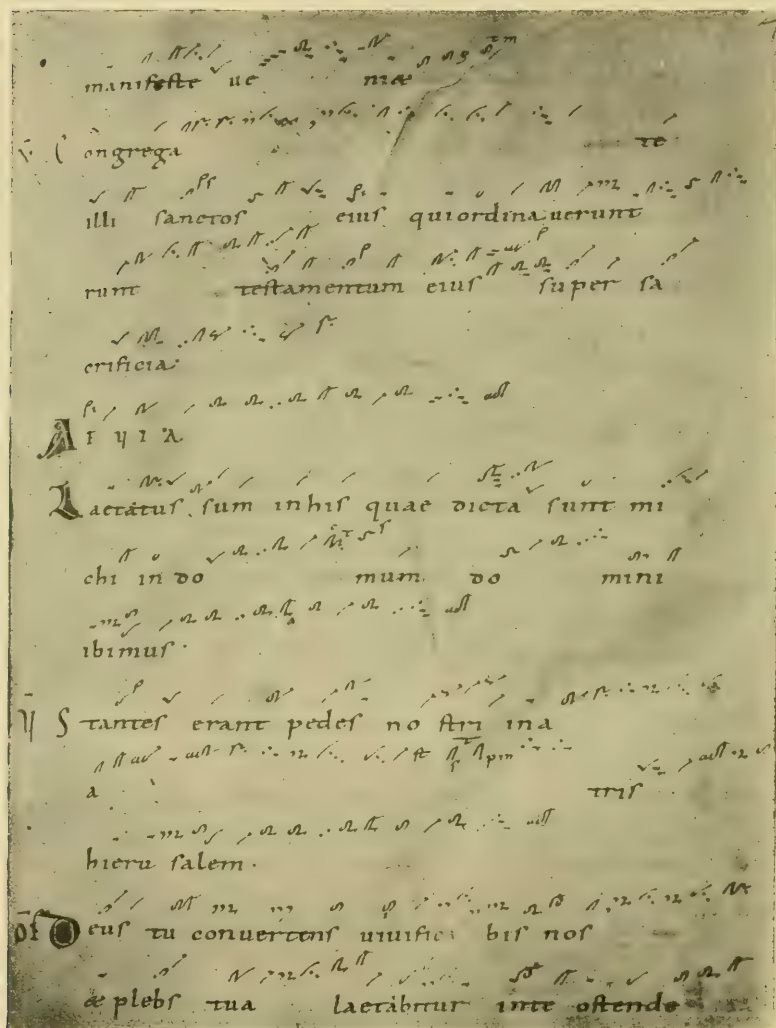 manifeste ue niæ
V Congrega te
illi sanctos eius qui ordinauerunt
runt testamentum eius super sa
crificia.
AEUIA
Laetatus sum inhis quae dicta sunt mi
chi in do mum do mini
ibimus.
V Stantes erant pedes no stri ina
a tris
hieru salem.
OF Deus tu conuertens uiuifica bis nos
æ plebs tua laetabitur inte ostende